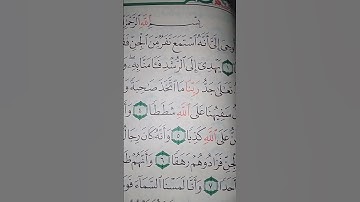 بِسْمِ ٱللَّهِ ٱلرَّحْمَ
وحِيَ إِلَىَّ أَنَّهُ ٱسْتَمَعَ نَفَرٌ مِّنَ ٱلْجِنِّ فَقَ
١ يَهْدِىٓ إِلَى ٱلرُّشْدِ فَـَٔامَنَّا بِهِۦ وَ
تَعَٰلَىٰ جَدُّ رَبِّنَا مَا ٱتَّخَذَ صَٰحِبَةً وَ
لُ سَفِيهُنَا عَلَى ٱللَّهِ شَطَطًا ٤ وَأَ
نُّ عَلَى ٱللَّهِ كَذِبًا ٥ وَأَنَّهُۥ كَانَ رِجَالٌ
جِنِّ فَزَادُوهُمْ رَهَقًا ٦ وَأَنَّهُمْ ظَ
أَحَدًا ٧ وَأَنَّا لَمَسْنَا ٱلسَّمَآءَ فَوَ